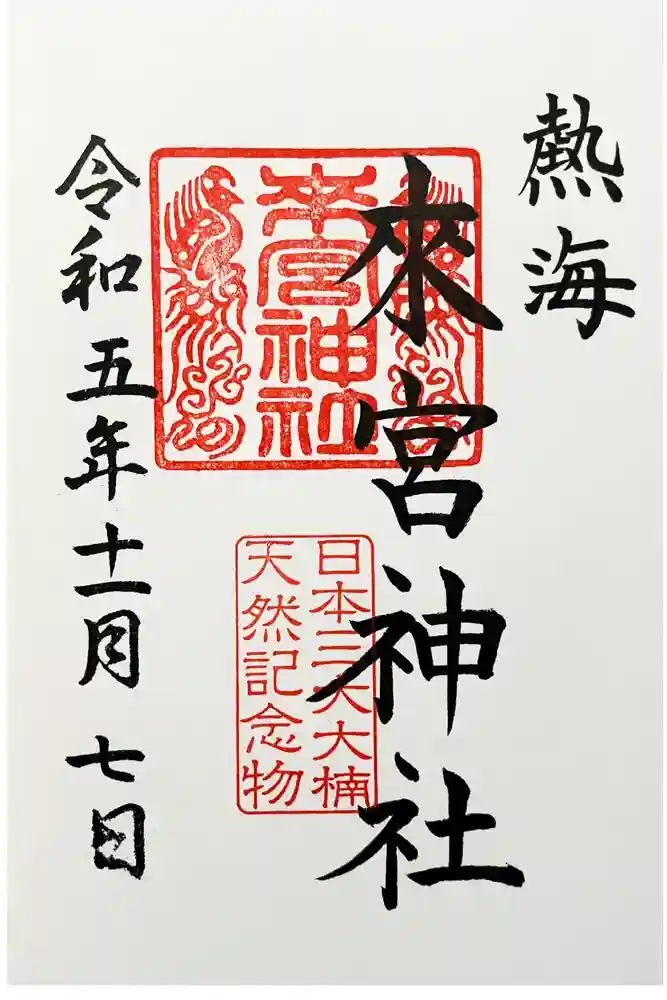 熱海
來宮神社
來宮神社
日本三大大楠
天然記念物
令和五年十一月七日